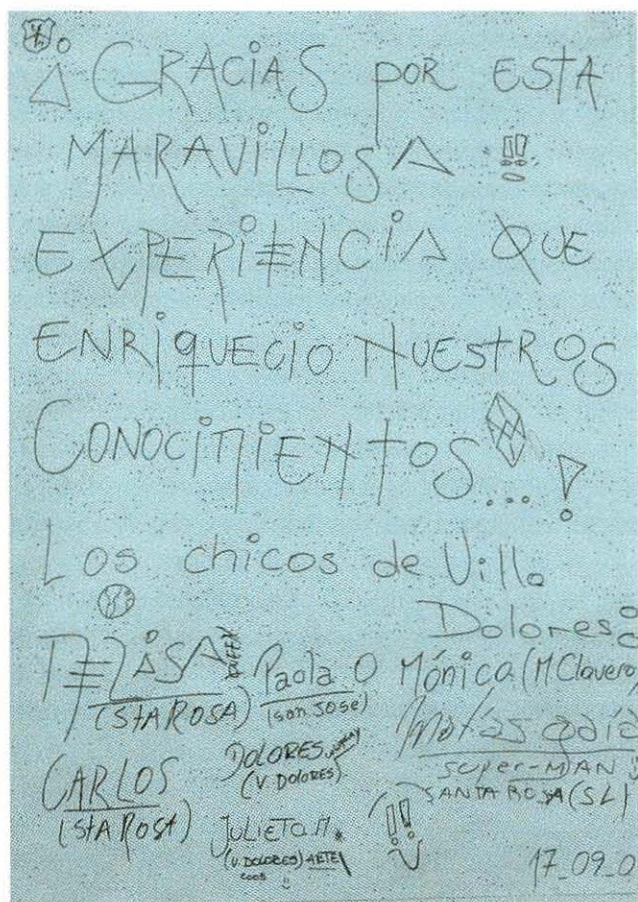 ¡GRACIAS POR ESTA
MARAVILLOSA !!
EXPERIENCIA QUE
ENRIQUECIO NUESTROS
CONOCIMIENTOS...!
Los chicos de Villa
Dolores:
(STA ROSA)
Paola O
(san José)
Mónica (M Clavero)
DOLORES
(V. DOLORES)
Matías
SUPER-MAN
SANTA ROSA (SL)
CARLOS
(STA ROSA)
JULIETA M.
(V. DOLORES) ARTE
!!
17_09_0